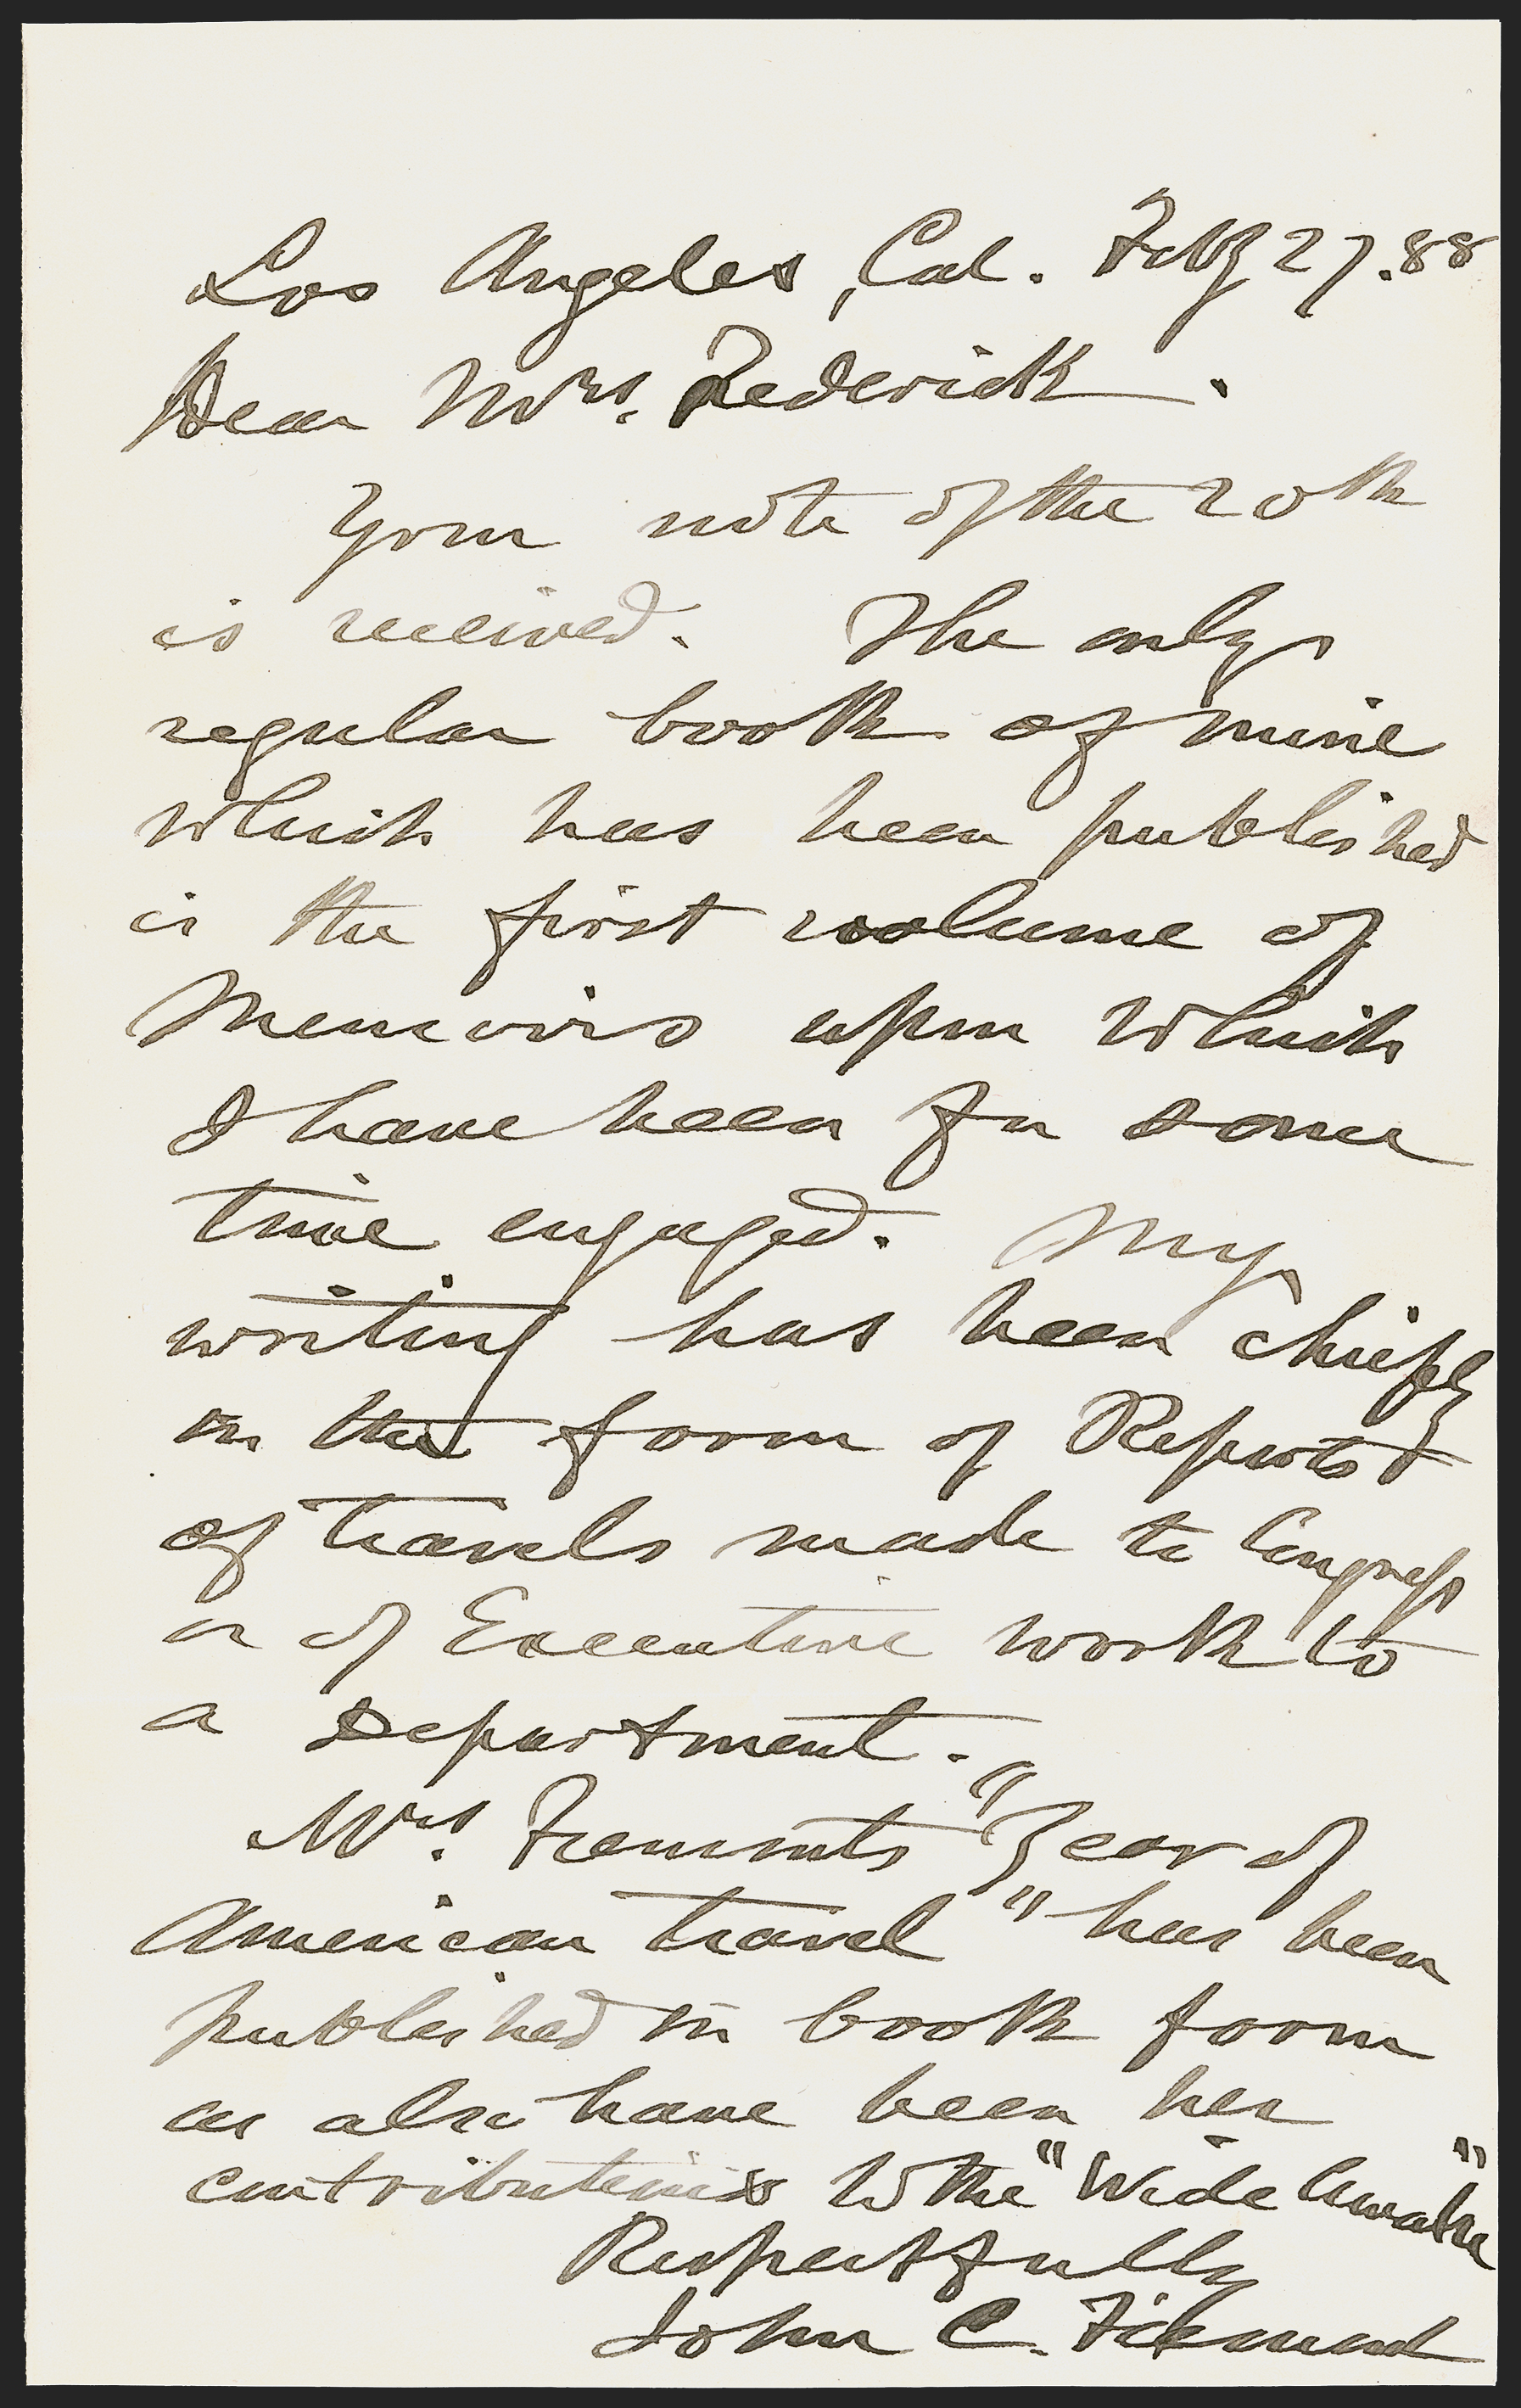 Los Angeles, Cal. Feby 27. 88
Dear Mrs. Frederick.
Your note of the 20th
is received. The only
regular book of mine
which has been published
is the first volume of
Memoirs upon which
I have been for some
time engaged. My
writing has been chiefly
in the form of Reports
of travels made to Congress
or of Executive work to
a Department.
Mrs. Fremonts "Year of
American travel" has been
published in book form
as also have been her
contributions to the "Wide Awake"
Respectfully
John C. Frémont